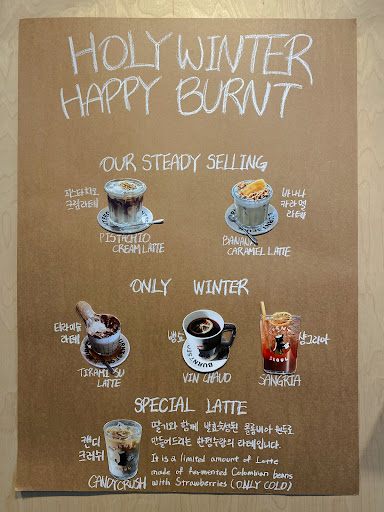 HOLY WINTER
HAPPY BURNT
OUR STEADY SELLING
피스타치오
크림라떼
PISTACHIO
CREAM LATTE
바나나
카라멜
라떼
BANANA
CARAMEL LATTE
ONLY WINTER
티라미수
라떼
TIRAMI SU
LATTE
뱅쇼
VIN CHAUD
샹그리아
SANGRIA
SPECIAL LATTE
캔디
크러쉬
CANDYCRUSH
딸기와 함께 발효숙성된 콜롬비아 원두로
만들어드리는 한정수량의 라떼입니다.
It is a limited amount of Latte
made of fermented Columbian beans
with Strawberries (ONLY COLD)